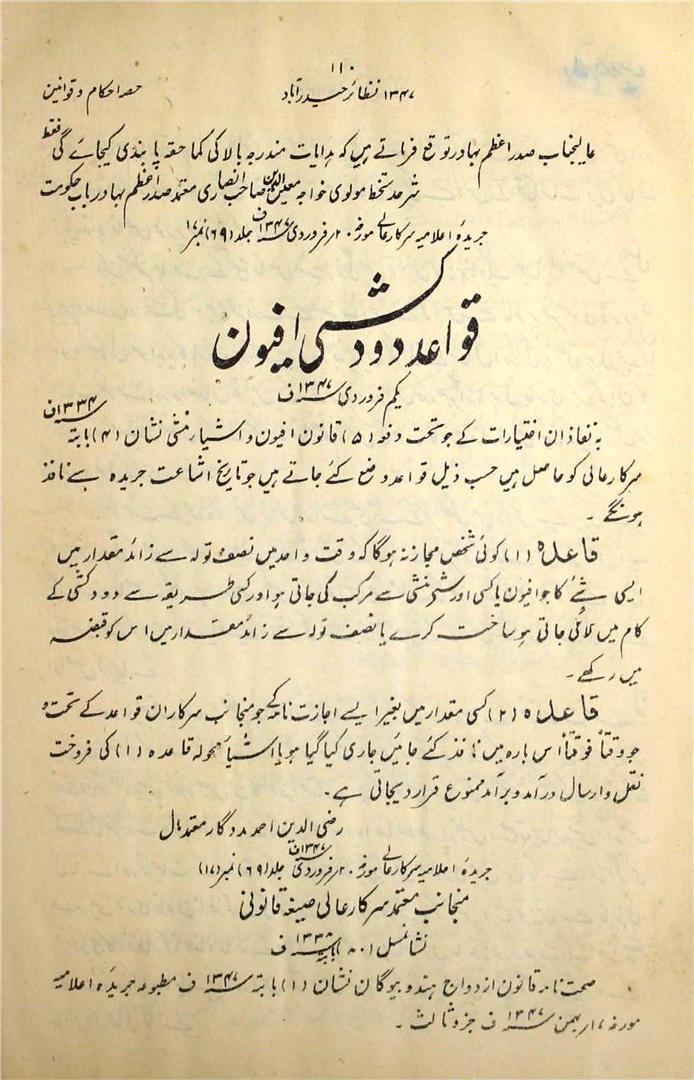 ۱۱۰
۱۳۴۷ نظائر حیدرآباد
حصہ احکام و قوانین
عالیجناب صدر اعظم بہادر توقع فرماتے ہیں کہ ہدایات مندرجہ بالا کی کما حقہ پابندی کیجائے گی فقط
شرحد ستخط مولوی خواجہ معین الدین صاحب انصاری معتمد صدر اعظم بہادر باب حکومت
جریدۂ اعلامیہ سرکار عالی مورخہ ۲۰ فروردی ۱۳۴۷ ف جلد (۶۹) نمبر ۱۷
قواعد دود کشی افیون
یکم فروردی ۱۳۴۷ ف
بہ نفاذ ان اختیارات کے جو تحت دفعہ (۵) قانون افیون و اشیار منشی نشان (۴) بابتہ ۱۳۳۴ ف
سرکار عالی کو حاصل ہیں حسب ذیل قواعد وضع کئے جاتے ہیں جو تاریخ اشاعت جریدہ سے نافذ
ہونگے ۔
قاعدہ (۱) کوئی شخص مجاز نہ ہوگا کہ وقت واحد میں نصف تولہ سے زائد مقدار میں
ایسی شئے کا جو افیون یا کسی اور شئی منشی سے مرکب کی جاتی ہو اور کسی طریقہ سے دود کشی کے
کام میں لائی جاتی ہو ساخت کرے یا نصف تولہ سے زائد مقدار میں اس کو قبضہ
میں رکھے ۔
قاعدہ (۲) کسی مقدار میں بغیر ایسے اجازت نامہ کے جو منجانب سرکار ان قواعد کے تحت و
جو وقتاً فوقتاً اس بارہ میں نافذ کئے جائیں جاری کیا گیا ہو یا اشیأ محولہ قاعدہ (۱) کی فروخت
نقل و ارسال درآمد و برآمد ممنوع قرار دیجاتی ہے ۔
رضی الدین احمد مددگار معتمد مال
جریدۂ اعلامیہ سرکار عالی مورخہ ۲۰ فروردی ۱۳۴۷ ف جلد (۶۹) نمبر (۱۷)
منجانب معتمد سرکار عالی صیغہ قانونی
نشانمسل ۸۰۱ بابتہ ۱۳۳۸ ف
صحت نامہ قانون ازدواج ہندو بیوگان نشان (۱) بابتہ ۱۳۴۷ ف مطبوعہ جریدۂ اعلامیہ
مورخہ ۱۷ بہمن ۱۳۴۷ ف جزو ثالث ۔